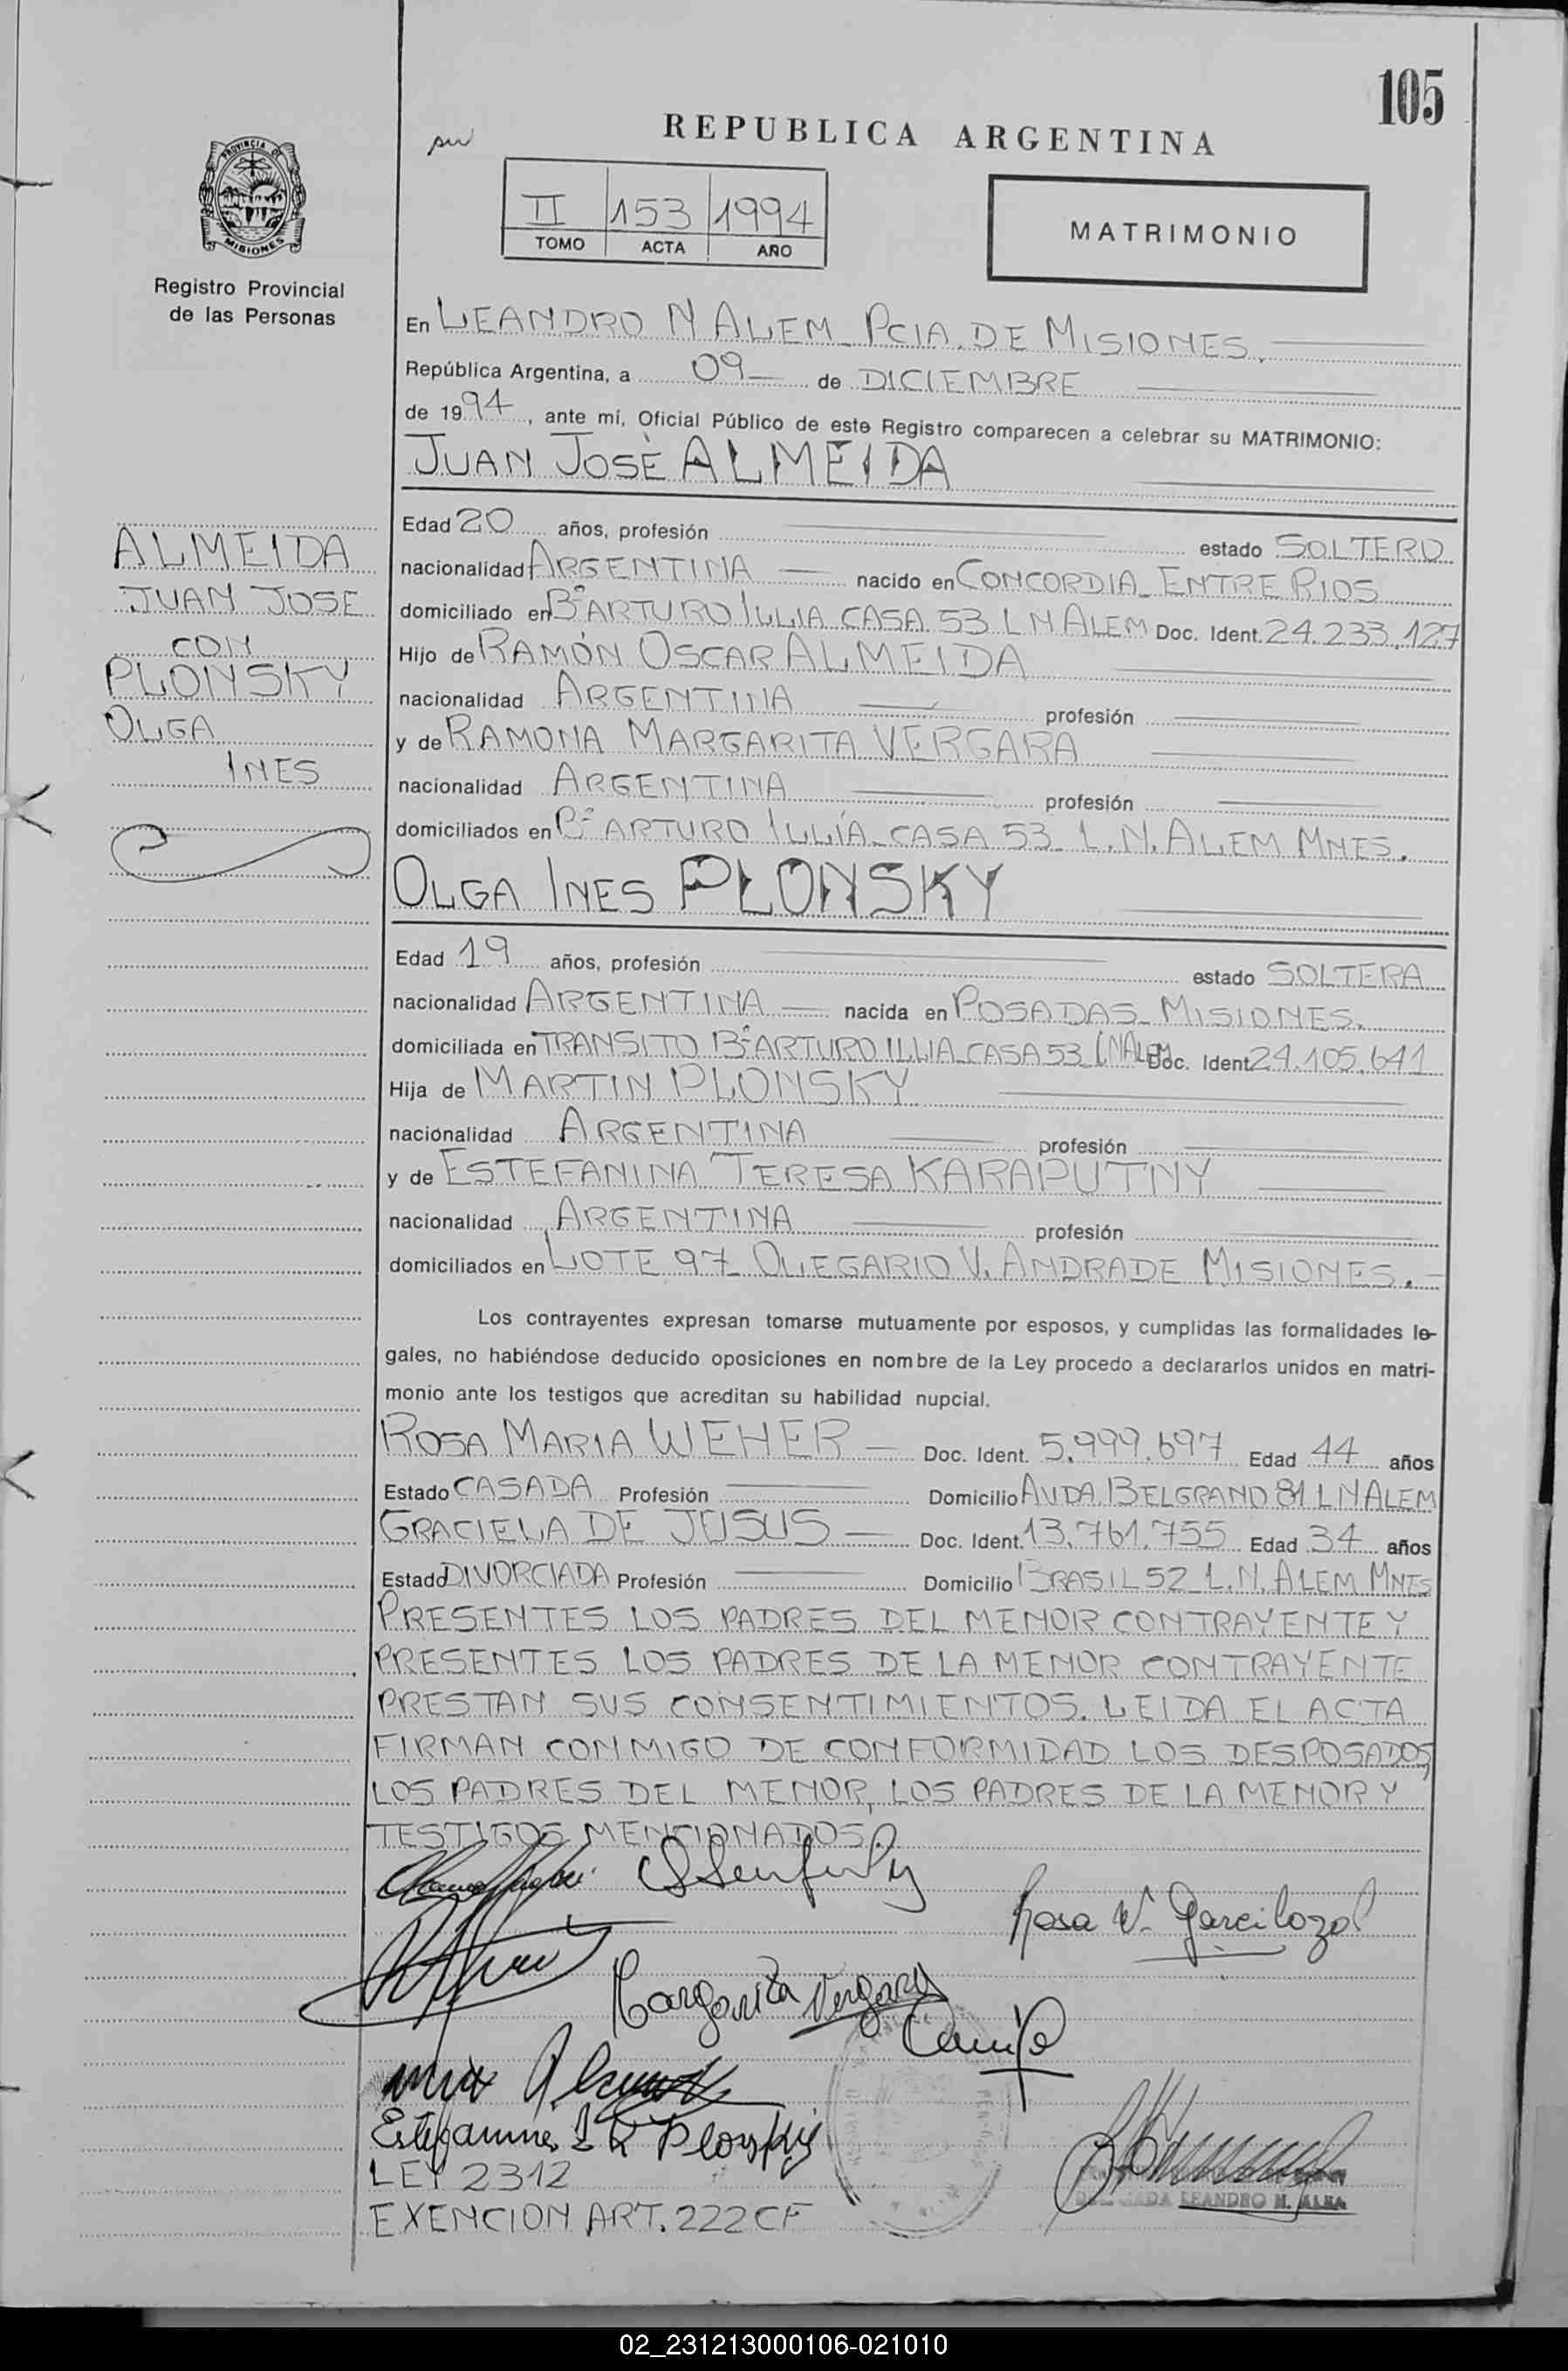 105
REPUBLICA ARGENTINA
PROVINCIA DE
MISIONES
Registro Provincial
de las Personas
II 153 1994
TOMO ACTA AÑO
MATRIMONIO
En LEANDRO N ALEM - PCIA. DE MISIONES.
República Argentina, a 09 de DICIEMBRE
de 1994, ante mí, Oficial Público de este Registro comparecen a celebrar su MATRIMONIO:
JUAN JOSÈ ALMEIDA
ALMEIDA
JUAN JOSE
CON
PLONSKY
OLGA
INES
Edad 20 años, profesión estado SOLTERO
nacionalidad ARGENTINA nacido en CONCORDIA - ENTRE RIOS
domiciliado en Bº ARTURO ILLIA CASA 53 L N ALEM Doc. Ident. 24.233.127
Hijo de RAMÓN OSCAR ALMEIDA
nacionalidad ARGENTINA profesión
y de RAMONA MARGARITA VERGARA
nacionalidad ARGENTINA profesión
domiciliados en Bº ARTURO ILLÍA - CASA 53 - L. N. ALEM MNES.
OLGA INES PLONSKY
Edad 19 años, profesión estado SOLTERA
nacionalidad ARGENTINA nacida en POSADAS - MISIONES.
domiciliada en TRANSITO Bº ARTURO ILLIA - CASA 53 L N ALEM Doc. Ident. 24.105.641
Hija de MARTIN PLONSKY
nacionalidad ARGENTINA profesión
y de ESTEFANINA TERESA KARAPUTNY
nacionalidad ARGENTINA profesión
domiciliados en LOTE 97 - OLEGARIO V. ANDRADE MISIONES. -
Los contrayentes expresan tomarse mutuamente por esposos, y cumplidas las formalidades le-
gales, no habiéndose deducido oposiciones en nombre de la Ley procedo a declararlos unidos en matri-
monio ante los testigos que acreditan su habilidad nupcial.
ROSA MARIA WEHER Doc. Ident. 5.999.697 Edad 44 años
Estado CASADA Profesión Domicilio AVDA. BELGRANO 81 L N ALEM
GRACIELA DE JUSUS Doc. Ident. 13.761.755 Edad 34 años
Estado DIVORCIADA Profesión Domicilio BRASIL 52 - L. N. ALEM MNES
PRESENTES LOS PADRES DEL MENOR CONTRAYENTE Y
PRESENTES LOS PADRES DE LA MENOR CONTRAYENTE
PRESTAN SUS CONSENTIMIENTOS. LEIDA EL ACTA
FIRMAN CONMIGO DE CONFORMIDAD LOS DESPOSADOS,
LOS PADRES DEL MENOR, LOS PADRES DE LA MENOR Y
TESTIGOS MENCIONADOS.
Rosa V. Garcilozo
Margarita Vergara
Plonsky
LEY 2312
LEANDRO N. ALEM
EXENCION ART. 222 CF
02_231213000106-021010